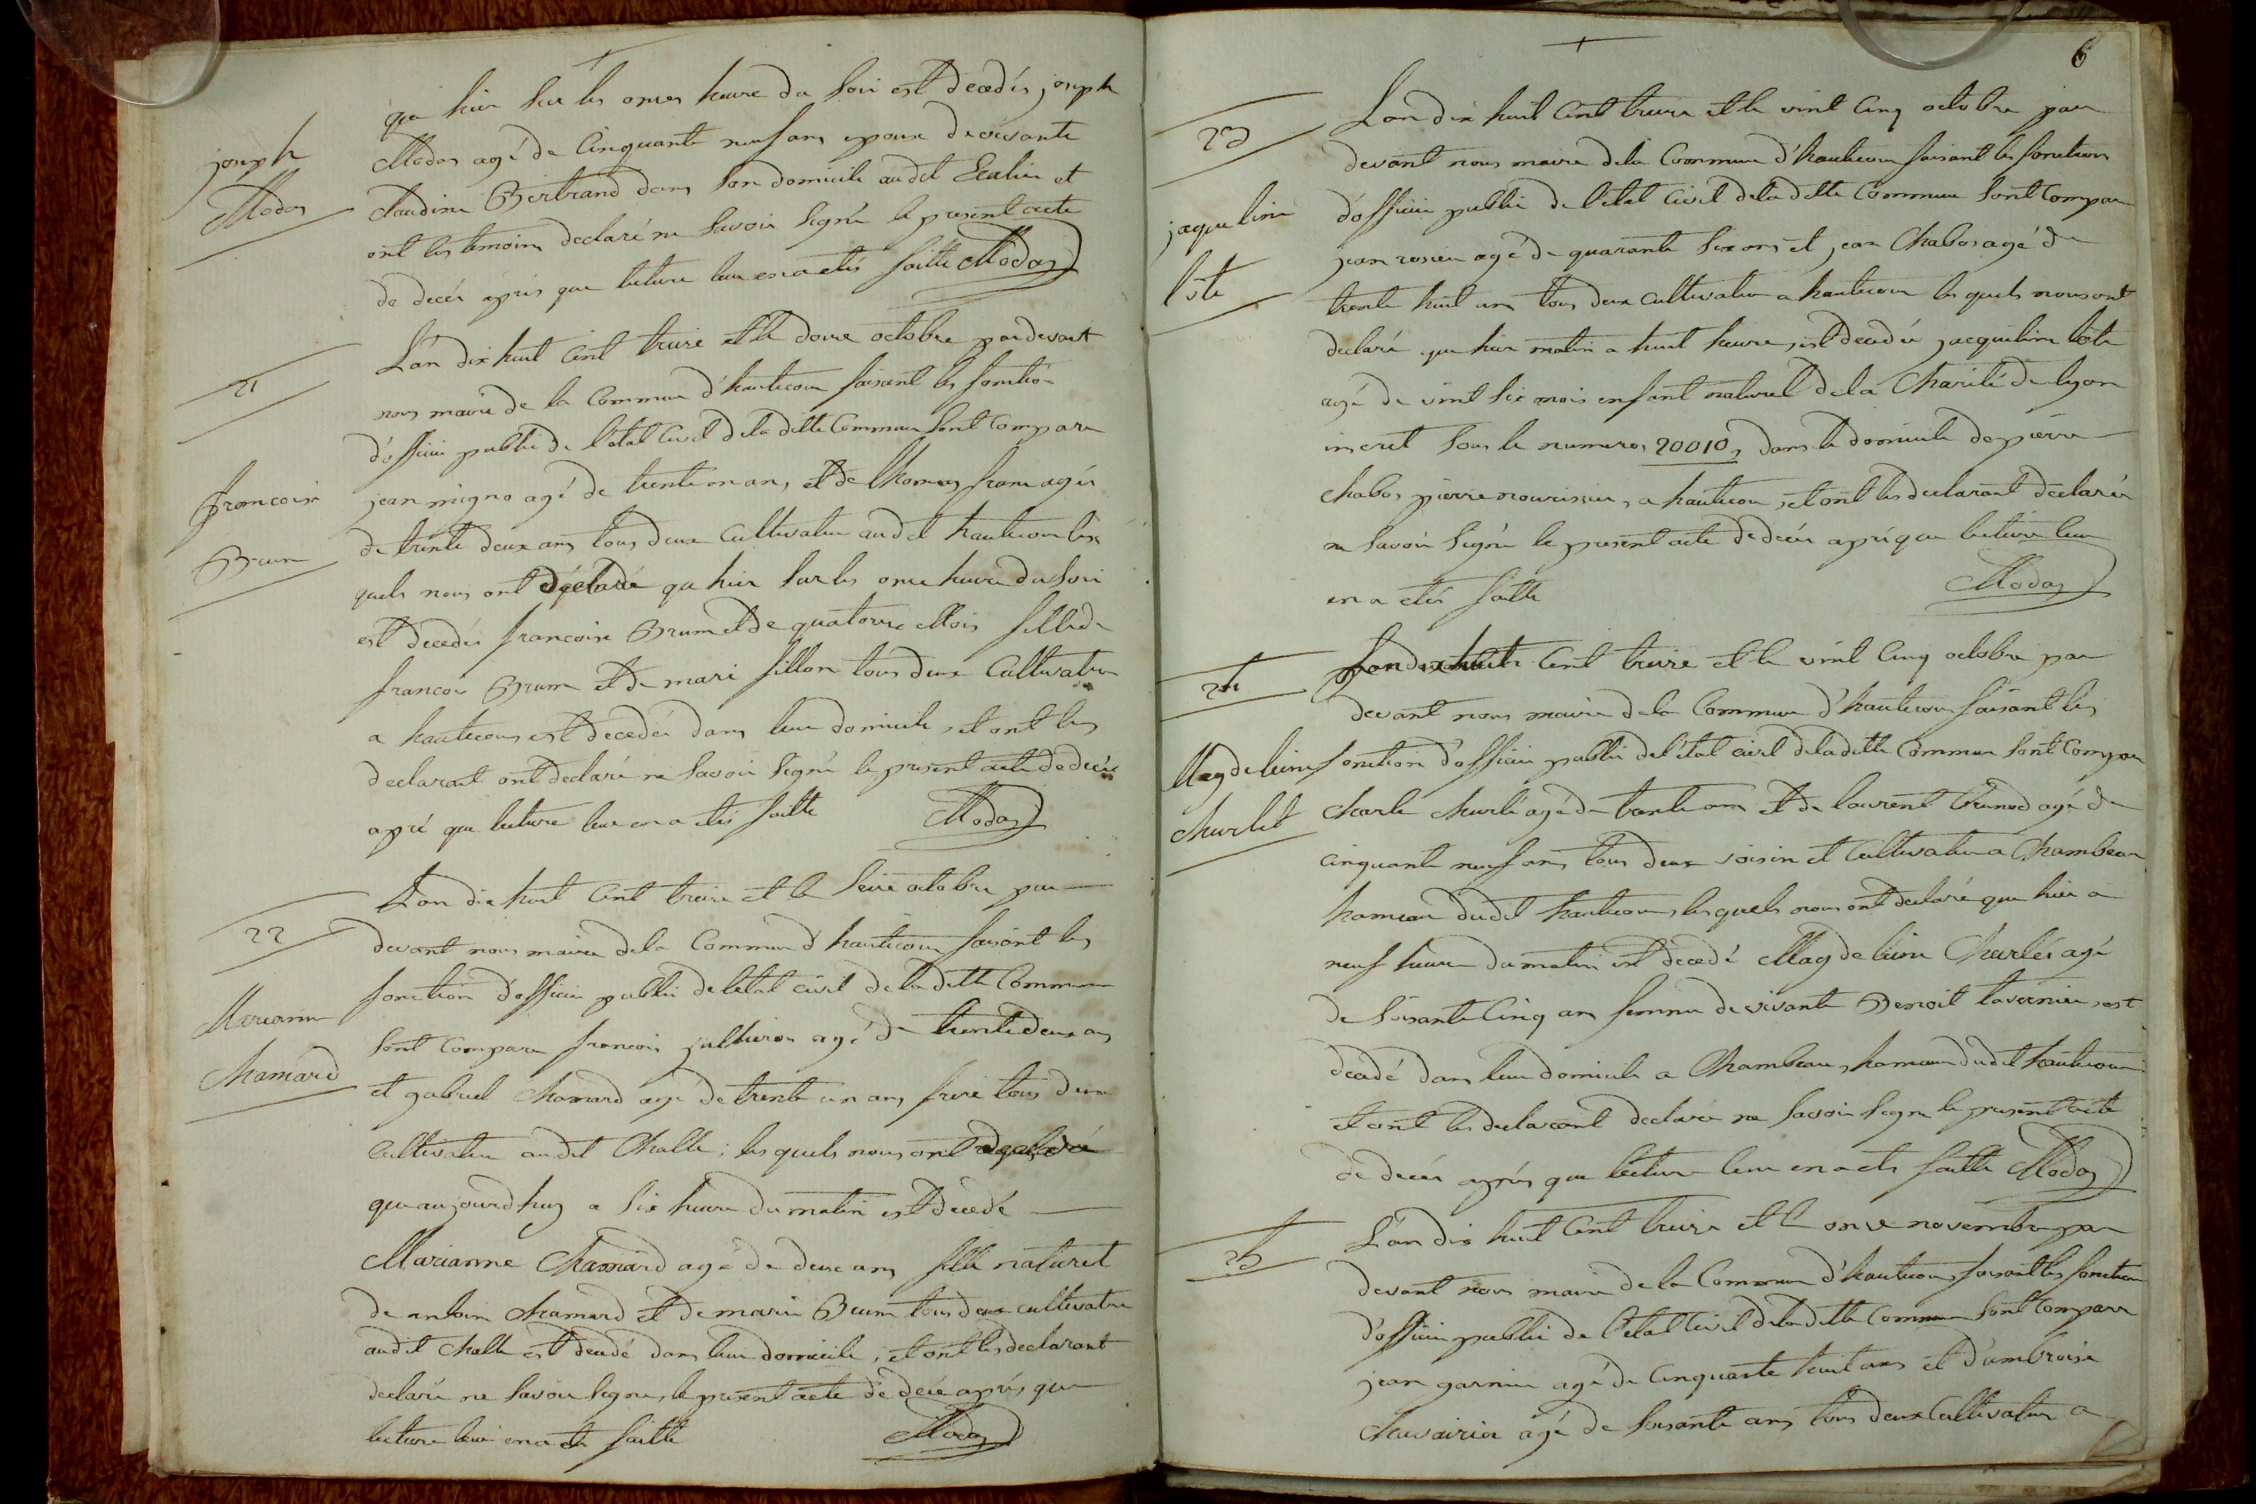 que hier sur les onzes heure du soir est decedés joseph
joseph
Modas
Modas agé de cinquante neuf ans epoux devivante
claudine Bertrand dans son domicile audit et
ont les temoins declaré ne savoir signer le present acte
de decés apris que lecture leur en a etés faitte Modas
21
L'an dix huit cent treize et le douze octobre pardevant
nous maire de la commune d'hautecour faisant les fonction
d'officier public de l'etat civil de la ditte commune sont comparu
francoise
Brun
jean migno agé de trente un ans et de thomas franc agés
de trente deux ans tous deux cultivateur audit hautecour les
quels nous ont declaré que hier sur les onze heure du soir
est decedés francoise Brun et de quatorze Mois fille de
francois Brun et de mari fillon tous deux cultivateur
a hautecour est decedés dans leur domicile, et ont les
declarant ont declaré ne savoir signer le present acte de decés
apré que lecture leur en a etés faitte Modas
22
L'an dix huit cent treize et le seize octobre par
devant nous maire de la commune d'hautecour faisant les
Marianne
Chamard
fonction d'officier public de l'etat civil de la ditte commune
sont comparu francois agé de trente deux ans
et gabriel Chamard agé de trente un ans frere tous deux
cultivateur audit Challe; les quels nous ont declaré
que aujourdhuy a six heure du matin est decedé
Marianne Chamard agé de deux ans fille naturel
de antoine chamard et de marie Brun tous deux cultivateur
audit challe est decedé dans leur domicile, et ont les declarant
declaré ne savoir signer, le present acte de decé aprés que
lecture leur en a eté faitte Modas
6
23
L'an dix huit cent treize et le vint cinq octobre par
devant nous maire de la commune d'hautecour faisant les fonction
jaqueline
lote
d'officier public de l'etat civil de la ditte commune sont comparu
jean rosier agé de quarante six ans et jean Chabos agé de
trente huit ans tous deux cultivateur a hautecour les quels nous ont
declaré que hier matin a huit heure, est decedée jacqueline lote
agé de vint six mois enfant naturel de la Charité de lyon
inscrit sous le numeros 20010, dans le domicile de pierre
chabos pierre nourissier, a hautecour, et ont les declarant declarés
ne savoir signer le present acte de decés aprés que lecture leur
en a etés faitte Modas
24
L'an dix huit cent treize et le vint cinq octobre par
devant nous maire de la commune d'hautecour faisant les
Magdeleine
Churlet
fonction d'officier public de l'etat civil de la ditte commune sont comparu
charle churlé agé de trente ans et de laurent agé de
cinquante neuf ans tous deux voisin et cultivateur a Chambeau
hameau dudit hautecour, les quels nous ont declaré que hier a
neuf heure du matin est decedé Magdeleine Churlés agé
de soisante cinq ans femme de vivante Benoit tavernier, est
decedé dans leur domicile a Chambeau, hameau dudit hautecour
et ont les declarant declarés ne savoir signer le present acte
de decés aprés que lecture leur en a etés faitte Modas
25
L'an dix huit cent treize et le onze novembre par
devant nous maire de la commune d'hautecour faisant les fonction
d'officier public de l'etat civil de la ditte commune sont comparu
jean garnier agé de cinquante huit ans et d'ambroise
agé de soisante ans tous deux cultivateur a